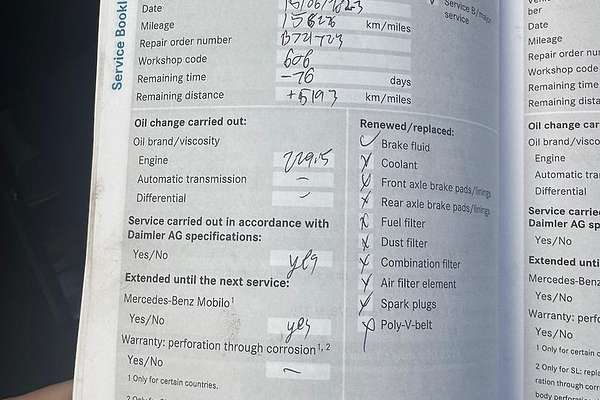 Service Bookl
Date
Mileage km/miles
Repair order number
Workshop code 606
Remaining time -76 days
Remaining distance +5193 km/miles
Service B/major
service
Oil change carried out:
Oil brand/viscosity
Engine 229.5
Automatic transmission –
Differential –
Service carried out in accordance with
Daimler AG specifications:
Yes/No yes
Extended until the next service:
Mercedes-Benz Mobilo¹
Yes/No yes
Warranty: perforation through corrosion¹, ²
Yes/No –
¹ Only for certain countries.
Renewed/replaced:
Brake fluid
Coolant
Front axle brake pads/linings
Rear axle brake pads/linings
Fuel filter
Dust filter
Combination filter
Air filter element
Spark plugs
Poly-V-belt
ber
Date
Mileage
Repair order num
Workshop code
Remaining time
Remaining dista
Oil change car
Oil brand/visco
Engine
Automatic tran
Differential
Service carrie
Daimler AG sp
Yes/No
Extended unti
Mercedes-Benz
Yes/No
Warranty: perfo
Yes/No
¹ Only for certain c
² Only for SL: repla
ration through corr
body perforatio